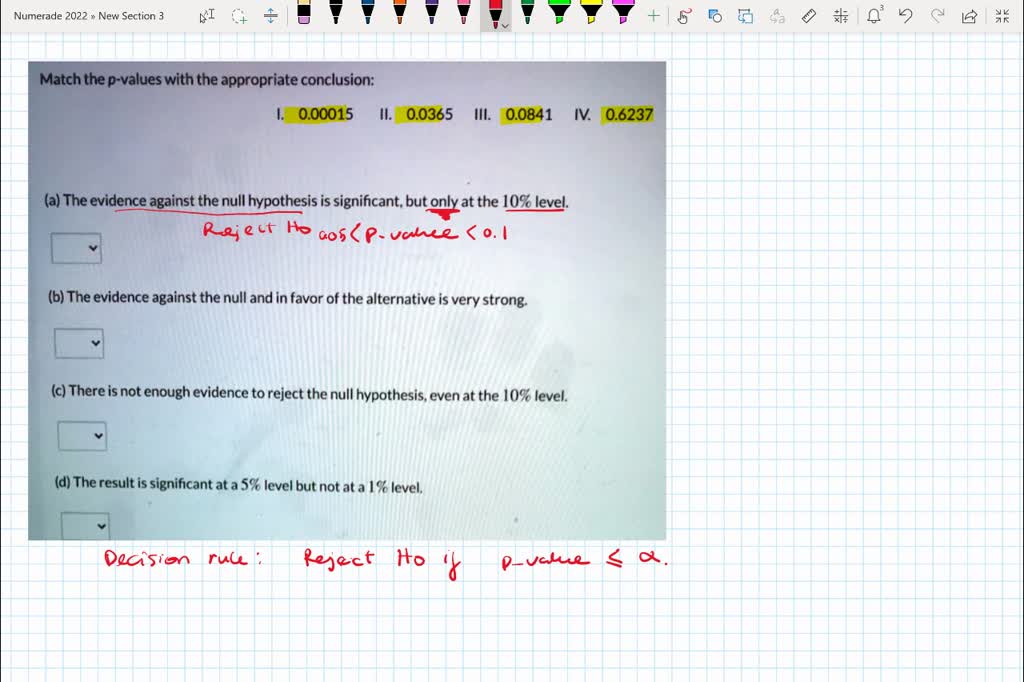 Numerade 2022 » New Section 3
3
Match the p-values with the appropriate conclusion:
I. 0.00015 II. 0.0365 III. 0.0841 IV. 0.6237
(a) The evidence against the null hypothesis is significant, but only at the 10% level.
Reject Ho 0.05 < p-value < 0.1
(b) The evidence against the null and in favor of the alternative is very strong.
(c) There is not enough evidence to reject the null hypothesis, even at the 10% level.
(d) The result is significant at a 5% level but not at a 1% level.
Decision rule: Reject Ho if p-value ≤ α.